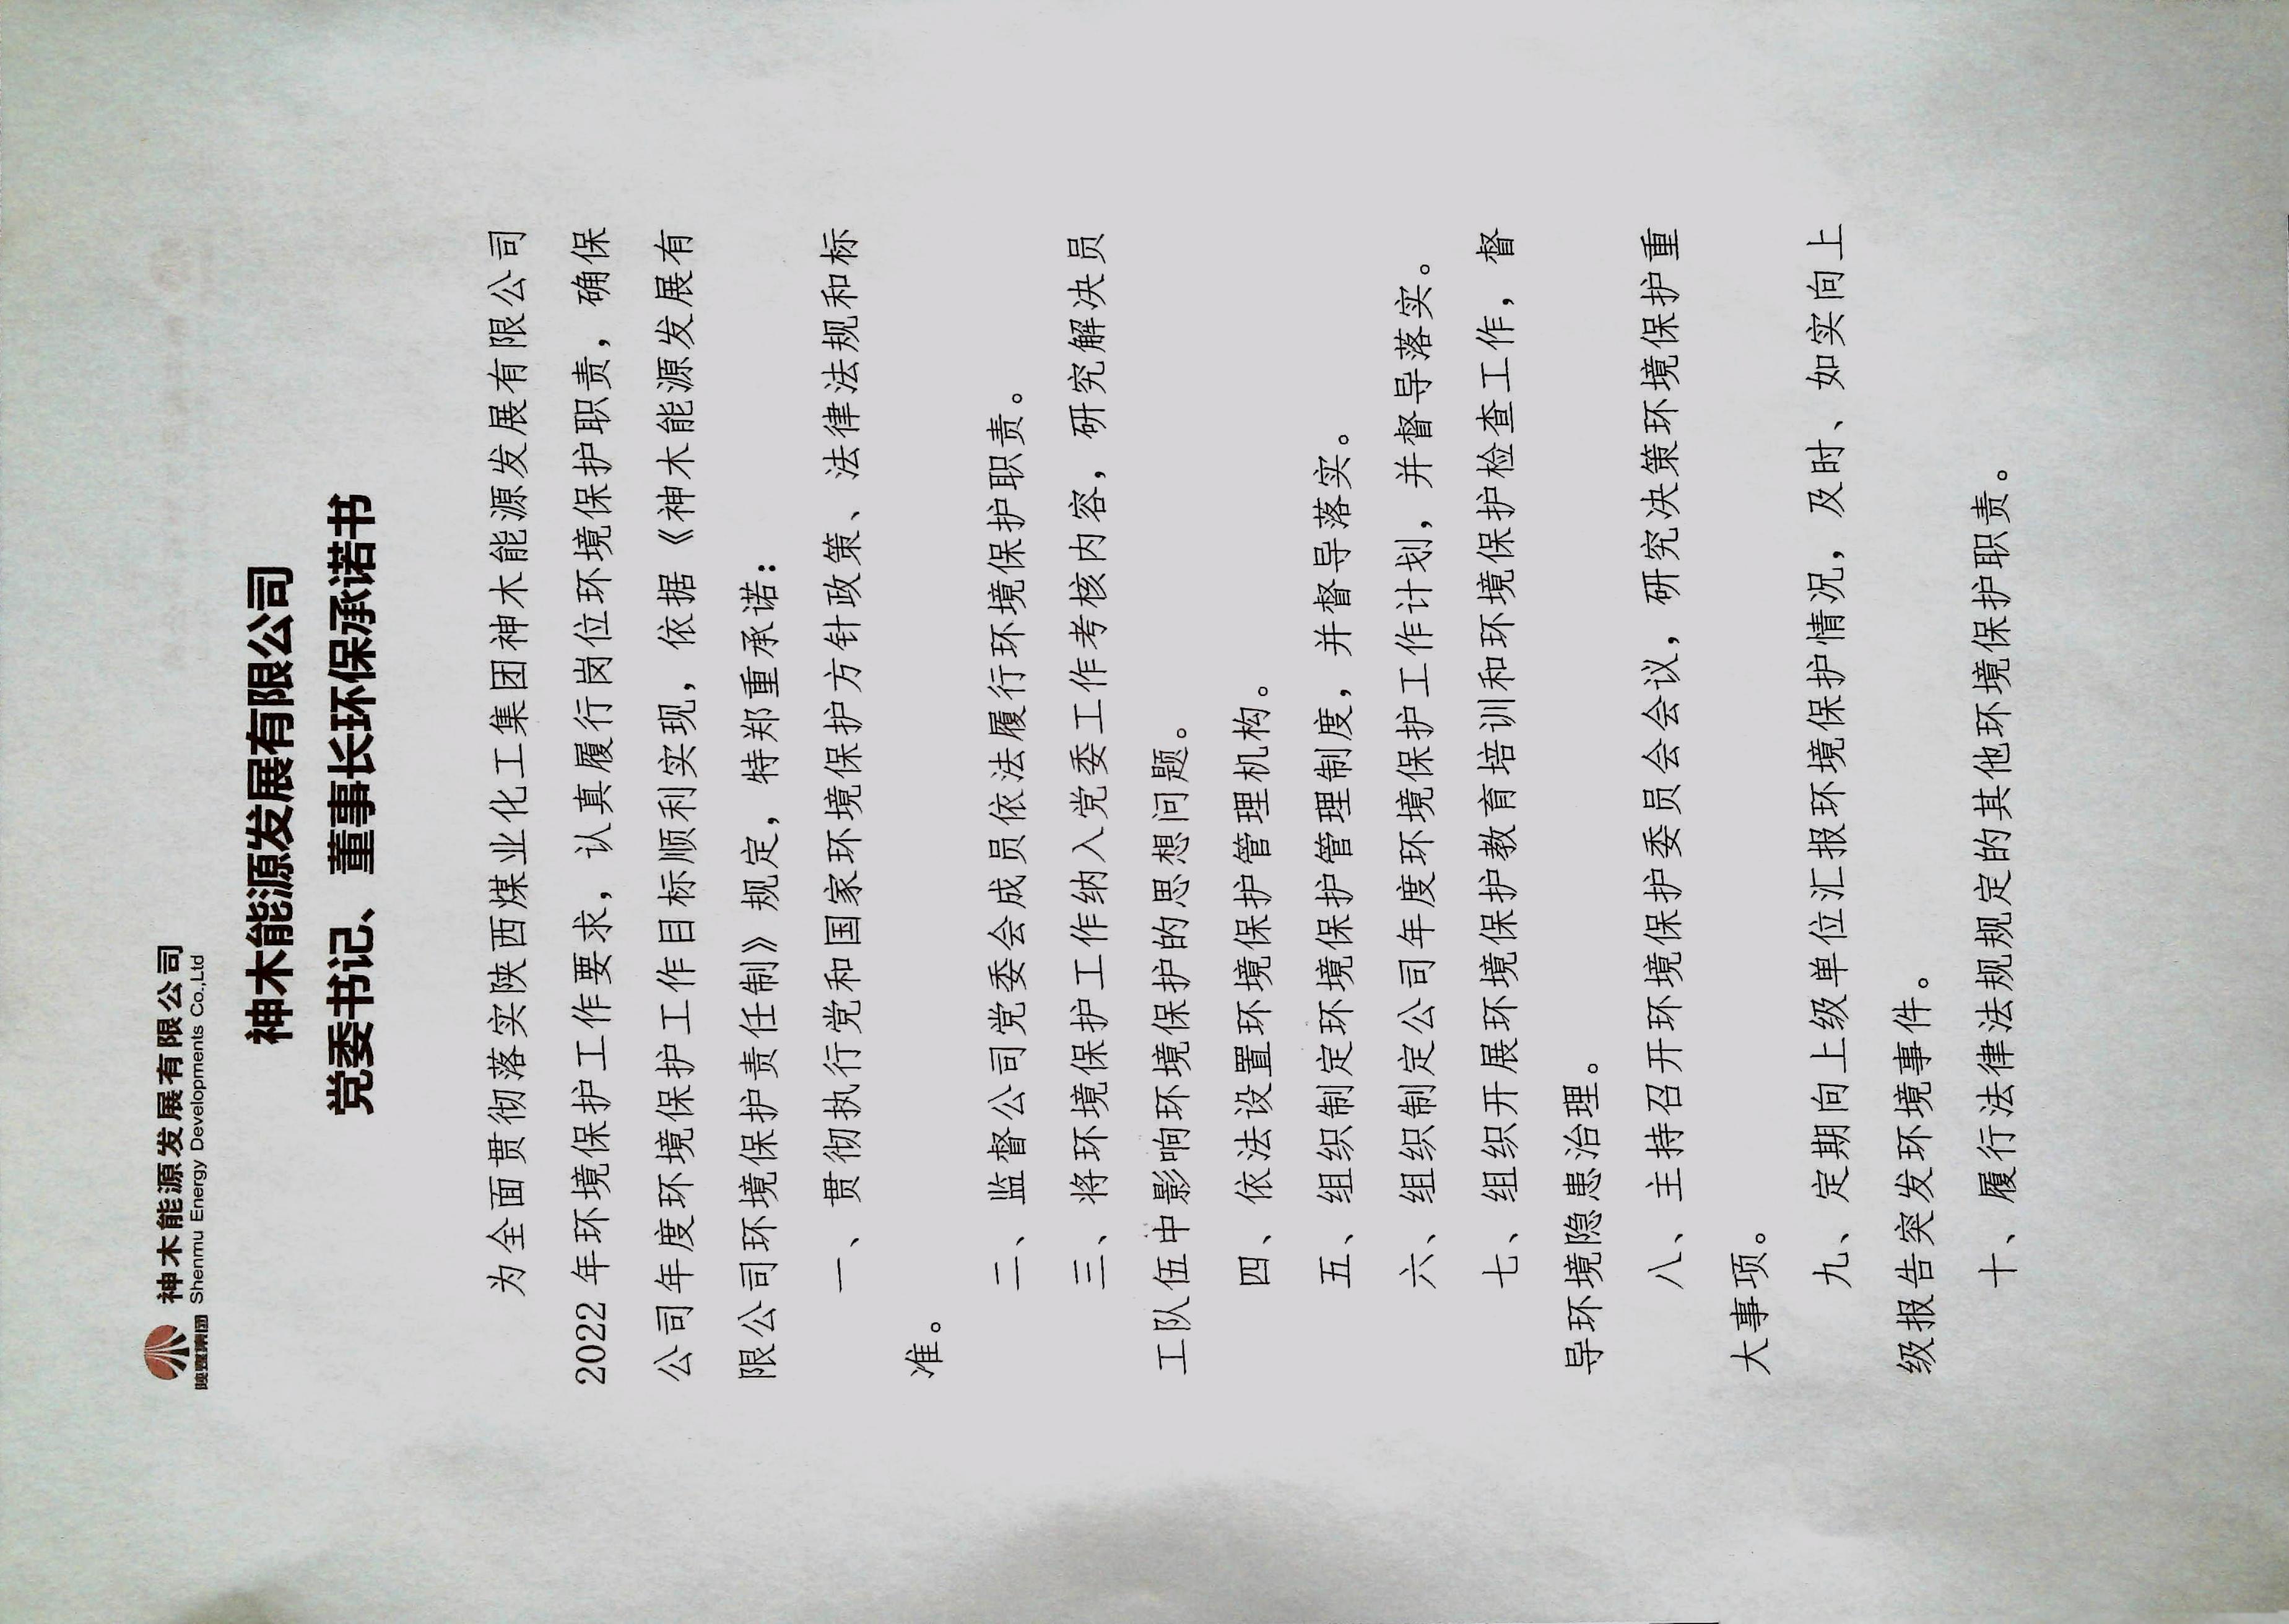 神木能源发展有限公司
陕煤集团
Shenmu Energy Developments Co.,Ltd
神木能源发展有限公司
党委书记、董事长环保承诺书
为全面贯彻落实陕西煤业化工集团神木能源发展有限公司
2022 年环境保护工作要求，认真履行岗位环境保护职责，确保
公司年度环境保护工作目标顺利实现，依据《神木能源发展有
限公司环境保护责任制》规定，特郑重承诺：
一、贯彻执行党和国家环境保护方针政策、法律法规和标
准。
二、监督公司党委会成员依法履行环境保护职责。
三、将环境保护工作纳入党委工作考核内容，研究解决员
工队伍中影响环境保护的思想问题。
四、依法设置环境保护管理机构。
五、组织制定环境保护管理制度，并督导落实。
六、组织制定公司年度环境保护工作计划，并督导落实。
七、组织开展环境保护教育培训和环境保护检查工作，督
导环境隐患治理。
八、主持召开环境保护委员会会议，研究决策环境保护重
大事项。
九、定期向上级单位汇报环境保护情况，及时、如实向上
级报告突发环境事件。
十、履行法律法规规定的其他环境保护职责。